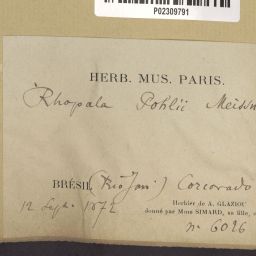 P02309791
HERB. MUS. PARIS.
Rhopala Pohlii Meissn
BRÉSIL (Rio Jan:) Corcovado
Herbier de A. GLAZIOU
12 Sept. 1872
donné par Mme SIMARD, sa fille,
n° 6026